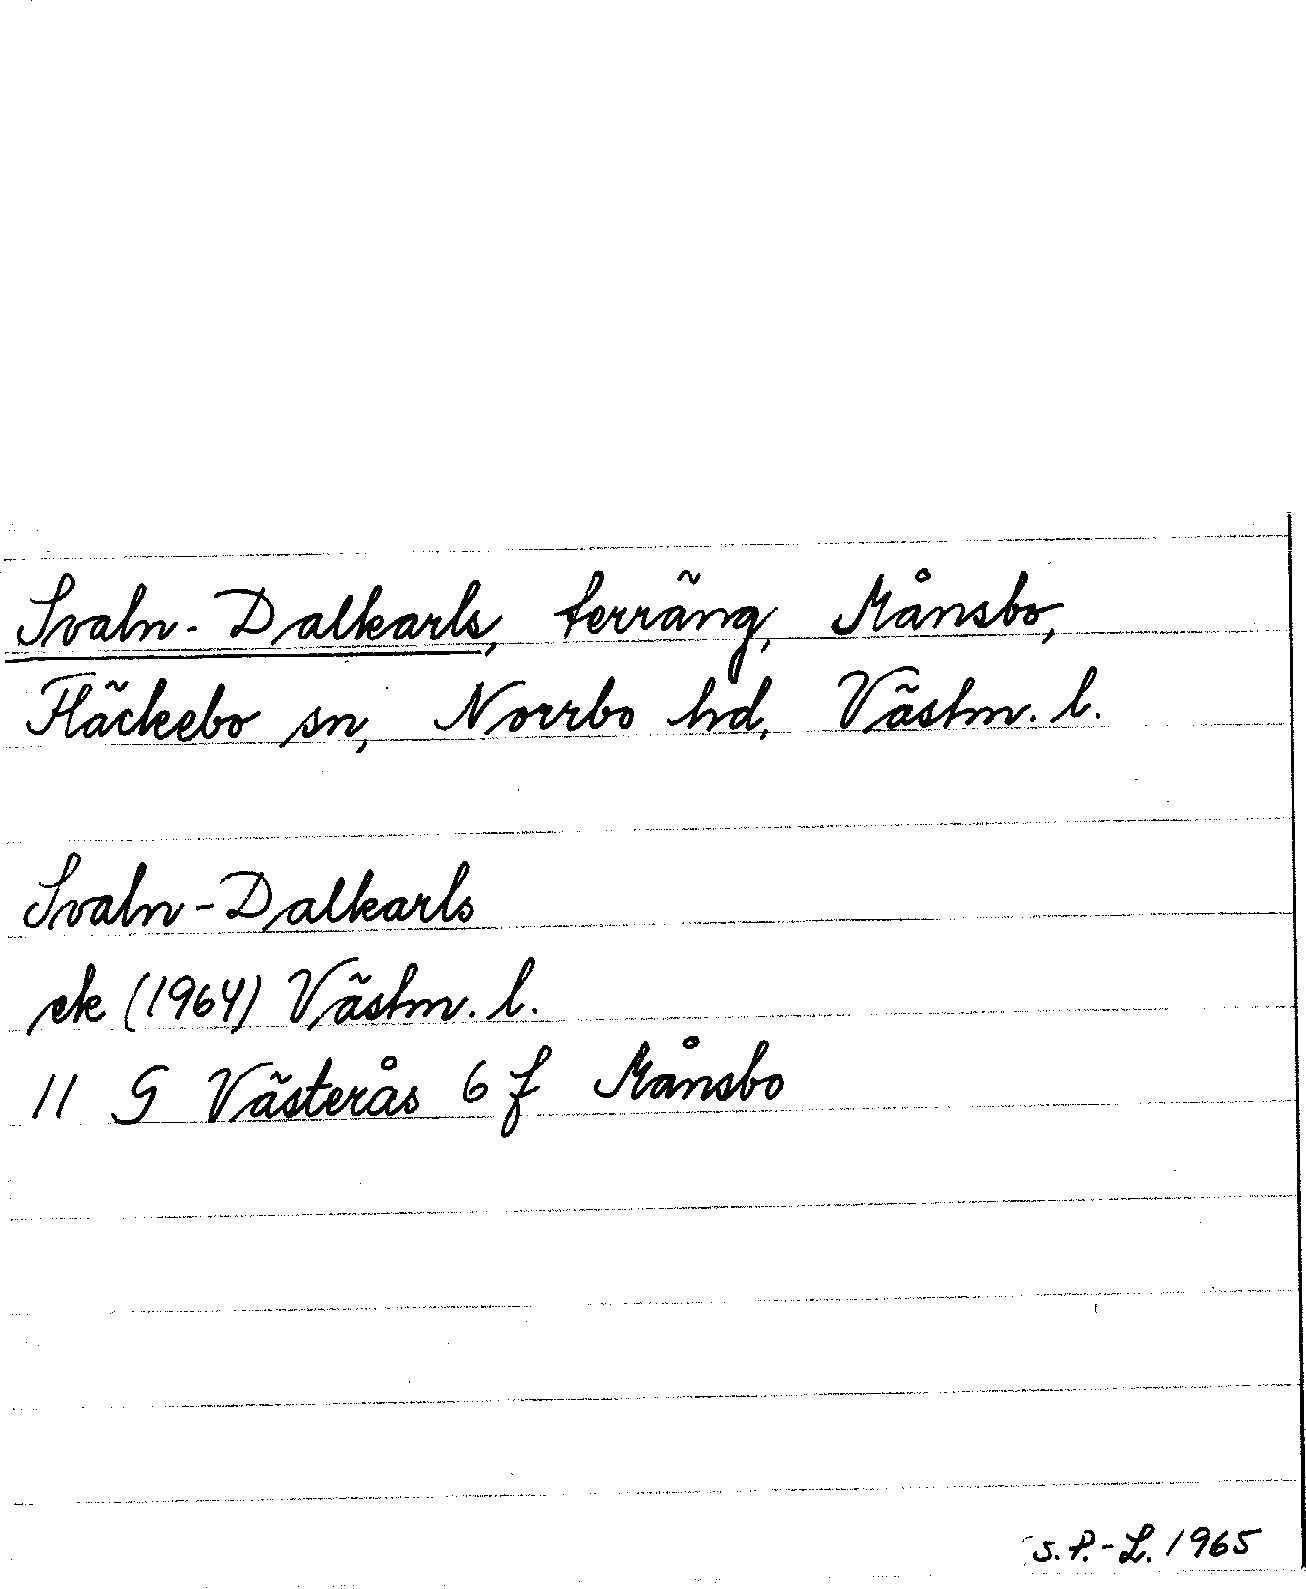 Svaln-Dalkarls, terräng, Månsbo,
Fläckebo sn, Norrbo hd, Västm. l.
Svaln-Dalkarls
ek (1964) Västm. l.
11 G Västerås 6 f Månsbo
S.P.-L. 1965